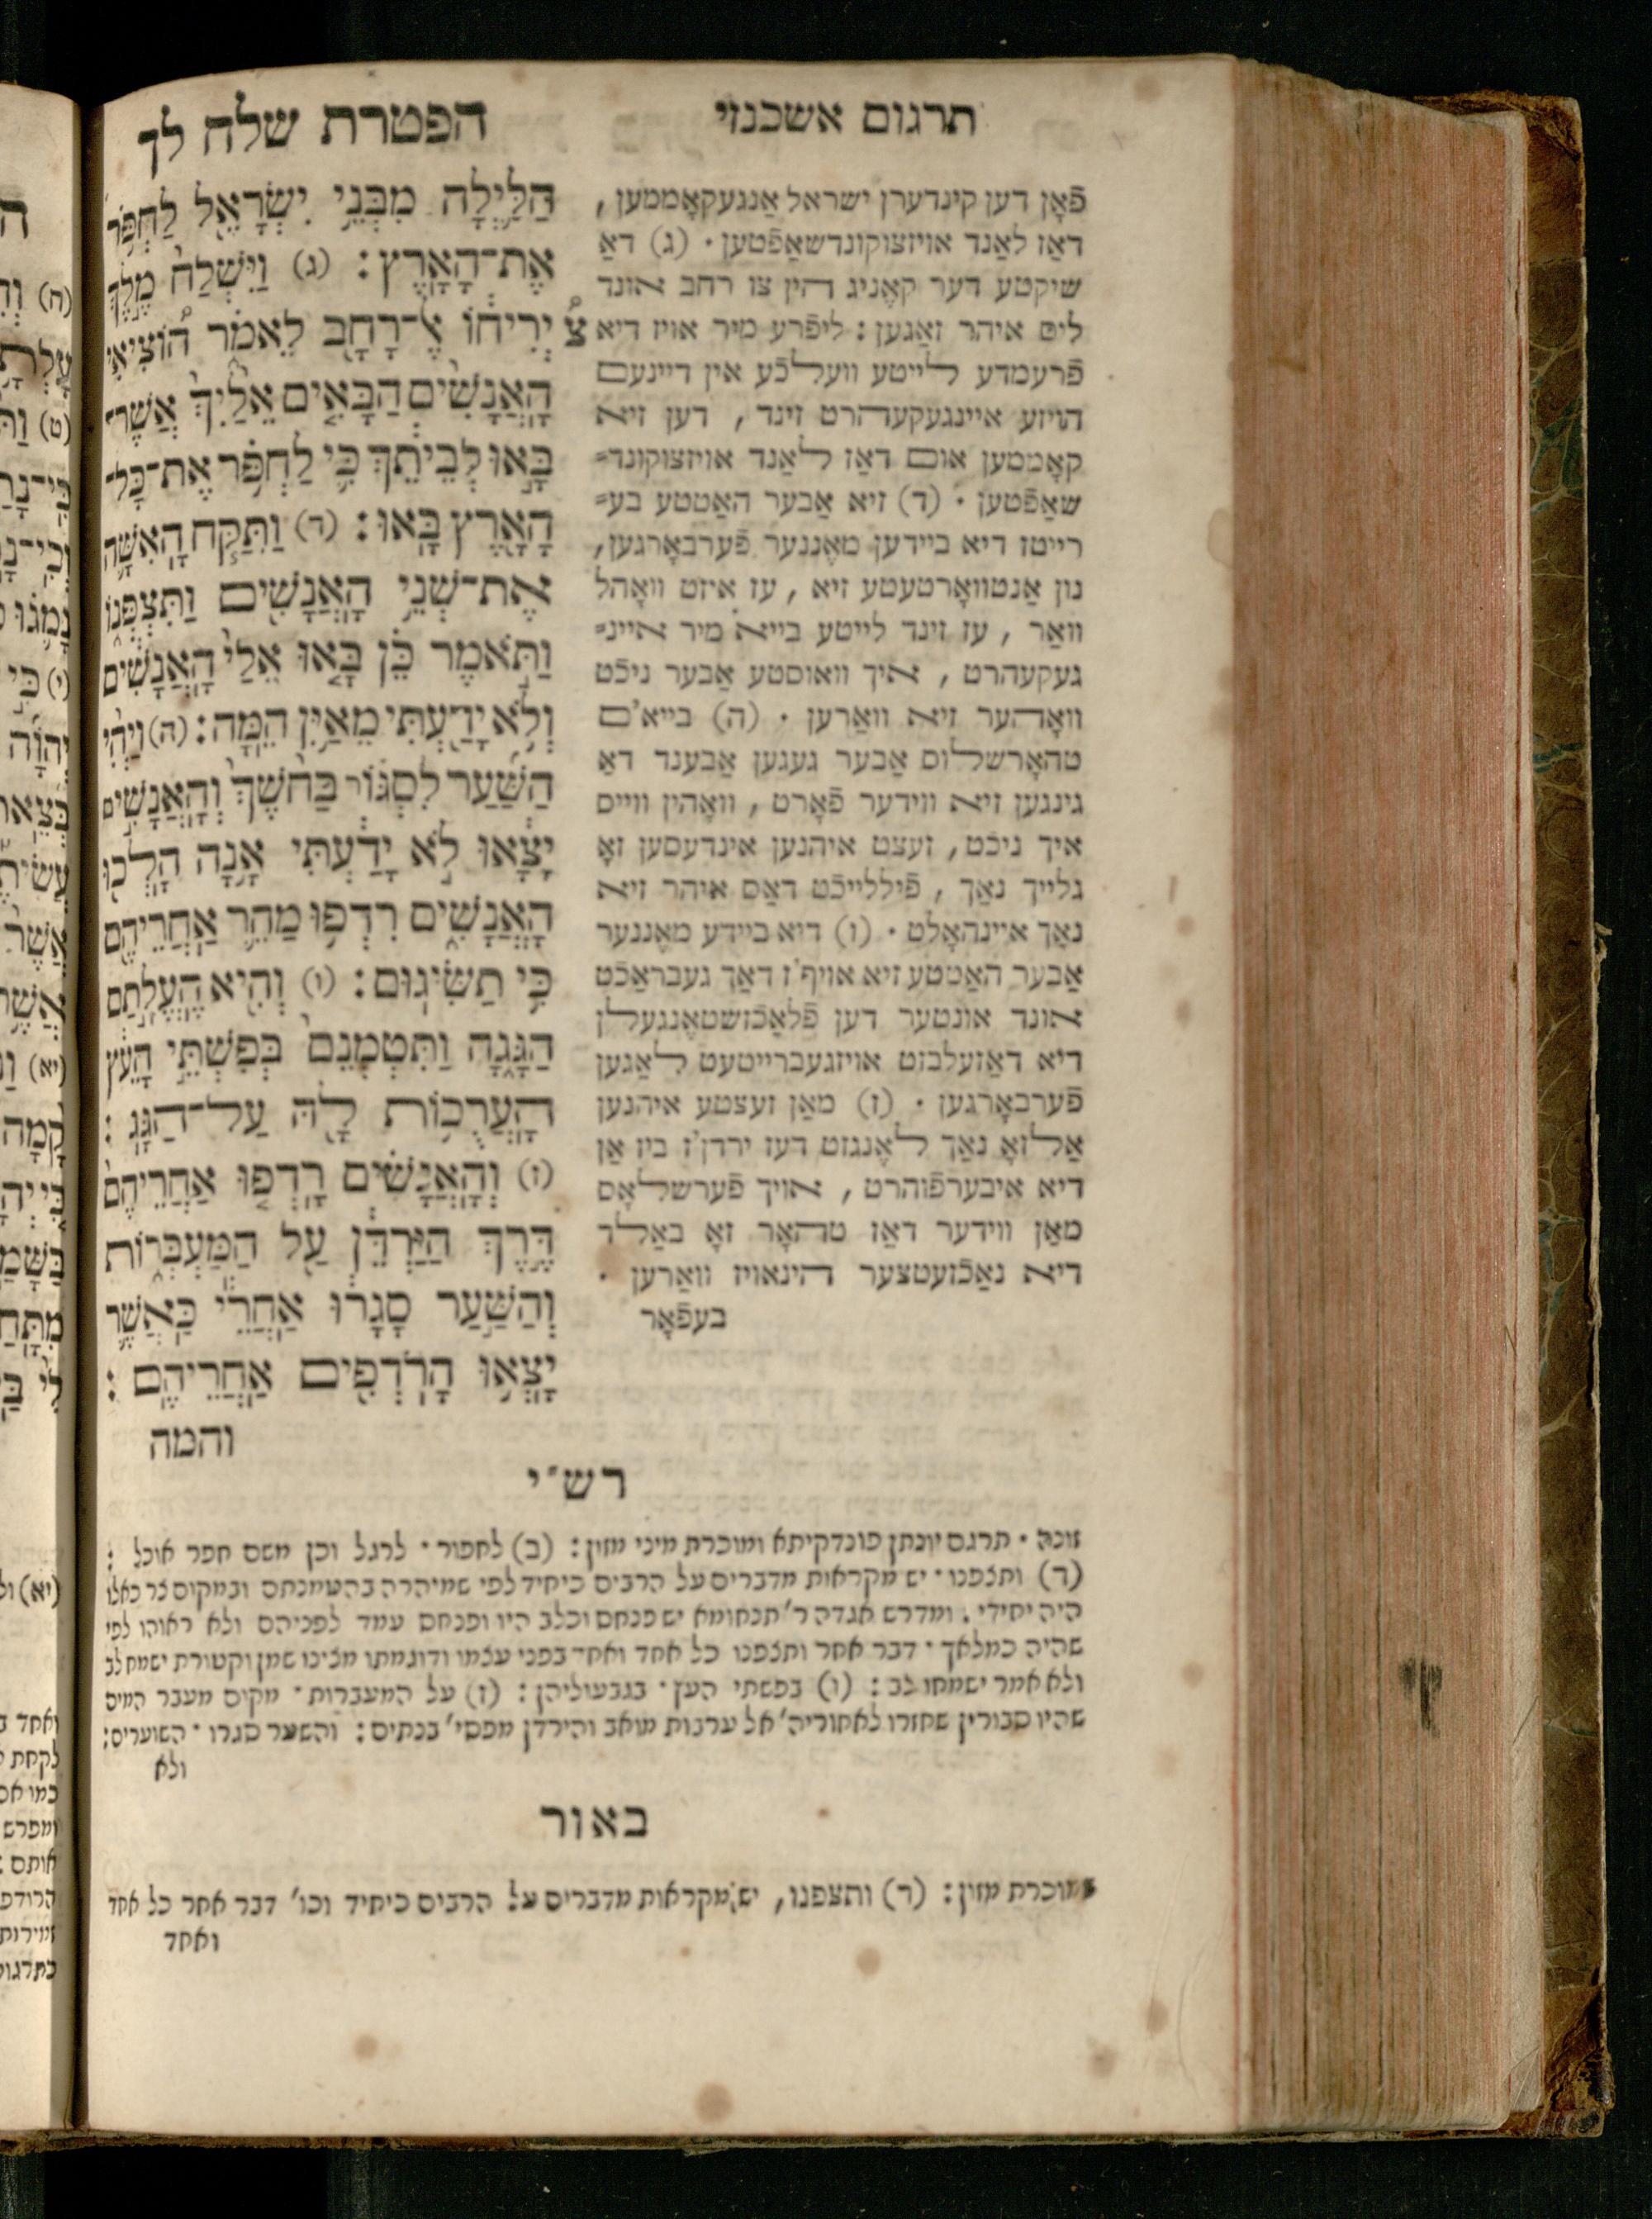 תרגום אשכנזי
הפטרת שלח לך
פֿאָן דען קינדערן ישראל אַנגעקאָממען,
דאַז לאַנד אויזצוקונדשאַפֿטען. (ג) דאַ
שיקטע דער קאֶניג הין צו רחב אונד
ליס איהר זאַגען: ליפֿרע מיר אויז דיא
פֿרעמדע לייטע וועלכֿע אין דיינעם
הויזע איינגעקעהרט זינד, דען זיא
קאָממען אום דאַז לאַנד אויזצוקונד=
שאַפֿטען. (ד) זיא אַבער האַטטע בע=
רייטז דיא ביידען מאֶננער פֿערבאָרגען,
נון אַנטוואָרטעטע זיא, עז איזט וואָהל
וואַר, עז זינד לייטע בייא מיר איינ=
געקעהרט, איך וואוסטע אַבער ניכֿט
וואָהער זיא וואַרען. (ה) בייא'ם
טהאָרשלוס אַבער געגען אַבענד דאַ
גינגען זיא ווידער פֿאָרט, וואָהין ווייס
איך ניכֿט, זעצט איהנען אינדעסען זאָ
גלייך נאַך, פֿיללייכֿט דאַס איהר זיא
נאָך איינהאָלט. (ו) דיא ביידע מאֶננער
אַבער האַטטע זיא אויף'ז דאַך געבראַכֿט
אונד אונטער דען פֿלאַכֿזשטאֶנגעלן
דיא דאַזעלבזט אויזגעברייטעט לאַגען
פֿערבאָרגען. (ז) מאַן זעצטע איהנען
אַלזאָ נאַך לאֶנגזט דעז ירדן'ז ביז אַן
דיא איבערפֿוהרט, אויך פֿערשלאָס
מאַן ווידער דאַז טהאָר זאָ באַלד
דיא נאַכֿזעטצער הינאויז וואַרען.
בעפֿאָר
הַלַּ֛יְלָה מִבְּנֵ֥י יִשְׂרָאֵ֖ל לַחְפֹּ֥ר
אֶת־הָאָֽרֶץ: (ג) וַיִּשְׁלַח֙ מֶ֣לֶךְ
יְרִיח֔וֹ אֶל־רָחָ֖ב לֵאמֹ֑ר ה֠וֹצִ֠יאִי
הָאֲנָשִׁ֨ים הַבָּאִ֤ים אֵלַ֙יִךְ֙ אֲשֶׁר־
בָּ֣אוּ לְבֵיתֵ֔ךְ כִּ֛י לַחְפֹּ֥ר אֶת־כָּל־
הָאָ֖רֶץ בָּֽאוּ: (ד) וַתִּקַּ֧ח הָֽאִשָּׁ֛ה
אֶת־שְׁנֵ֥י הָאֲנָשִׁ֖ים וַֽתִּצְפְּנ֑וֹ
וַתֹּ֣אמֶר כֵּ֗ן בָּ֤אוּ אֵלַי֙ הָֽאֲנָשִׁ֔ים
וְלֹ֥א יָדַ֖עְתִּי מֵאַ֥יִן הֵֽמָּה: (ה) וַיְהִ֨י
הַשַּׁ֜עַר לִסְגּ֗וֹר בַּחֹ֙שֶׁךְ֙ וְהָאֲנָשִׁ֣ים
יָצָ֔אוּ לֹ֣א יָדַ֔עְתִּי אָ֥נָה הָלְכ֖וּ
הָֽאֲנָשִׁ֑ים רִדְפ֥וּ מַהֵ֛ר אַחֲרֵיהֶ֖ם
כִּ֥י תַשִּׂיגֽוּם: (ו) וְהִ֖יא הֶעֱלָ֣תַם
הַגָּ֑גָה וַֽתִּטְמְנֵם֙ בְּפִשְׁתֵּ֣י הָעֵ֔ץ
הָעֲרֻכ֥וֹת לָ֖הּ עַל־הַגָּֽג:
(ז) וְהָאֲנָשִׁ֗ים רָדְפ֤וּ אַֽחֲרֵיהֶם֙
דֶּ֣רֶךְ הַיַּרְדֵּ֔ן עַ֖ל הַֽמַּעְבְּר֑וֹת
וְהַשַּׁ֣עַר סָגָ֔רוּ אַחֲרֵ֕י כַּאֲשֶׁ֛ר
יָצְא֥וּ הָרֹדְפִ֖ים אַחֲרֵיהֶֽם:
והמה
רש"י
זונה. תרגם יונתן פונדקיתא ומוכרת מיני מזון: (ב) לחפור. לרגל וכן משם חפר אוכל:
(ד) ותצפנו. יש מקראות מדברים על הרבים כיחיד לפי שמיהרה בהטמנתם ובמקום צר כאלו
היה יחידי. ומדרש אגדה ר' תנחומא יש פנחס וכלב היו ופנחס עמד לפניהם ולא ראוהו לפי
שהיה כמלאך. דבר אחר ותצפנו כל אחד ואחד בפני עצמו ודוגמתו מצינו שמן וקטורת ישמח לב
ולא אמר ישמחו לב: (ו) בפשתי העץ. בגבעוליהן: (ז) על המעברות. מקום מעבר המים
שהיו סבורין שחזרו לאחוריה' אל ערבות מואב והירדן מפסי' בנתים: והשער סגרו. השוערים:
ולא
באור
מוכרת מזון: (ד) ותצפנו, יש מקראות מדברים על הרבים כיחיד וכו' דבר אחר כל אחד
ואחד